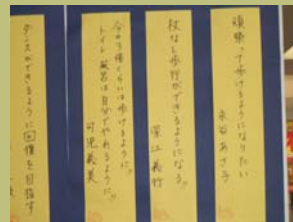 頑張って歩けるようになりたい
永谷あさ子
杖なし歩行ができるようになる!!
深江義行
今より倍くらいは歩けるように!!
トイレ 風呂は自分でやれるように!!
可児義美
ダンスができるように回復を目指す